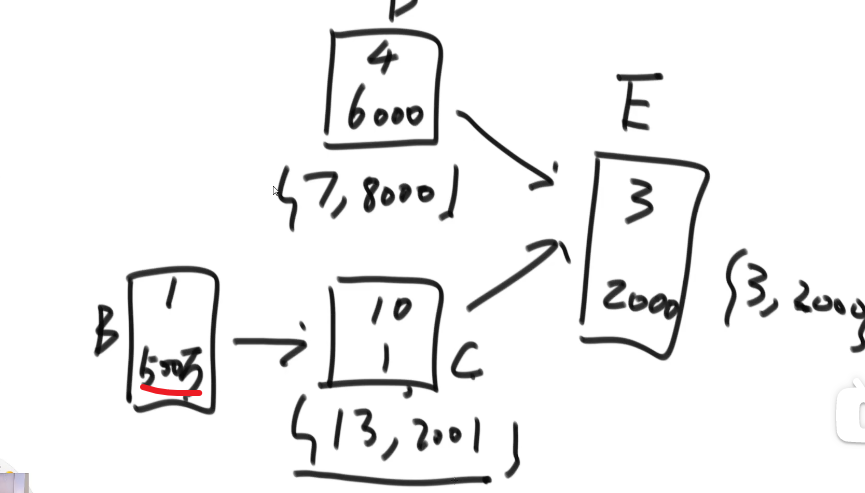 D
4
6000
{7, 8000}
E
3
2000
{3, 2000}
B
1
500万
10
1
C
{13, 2001}